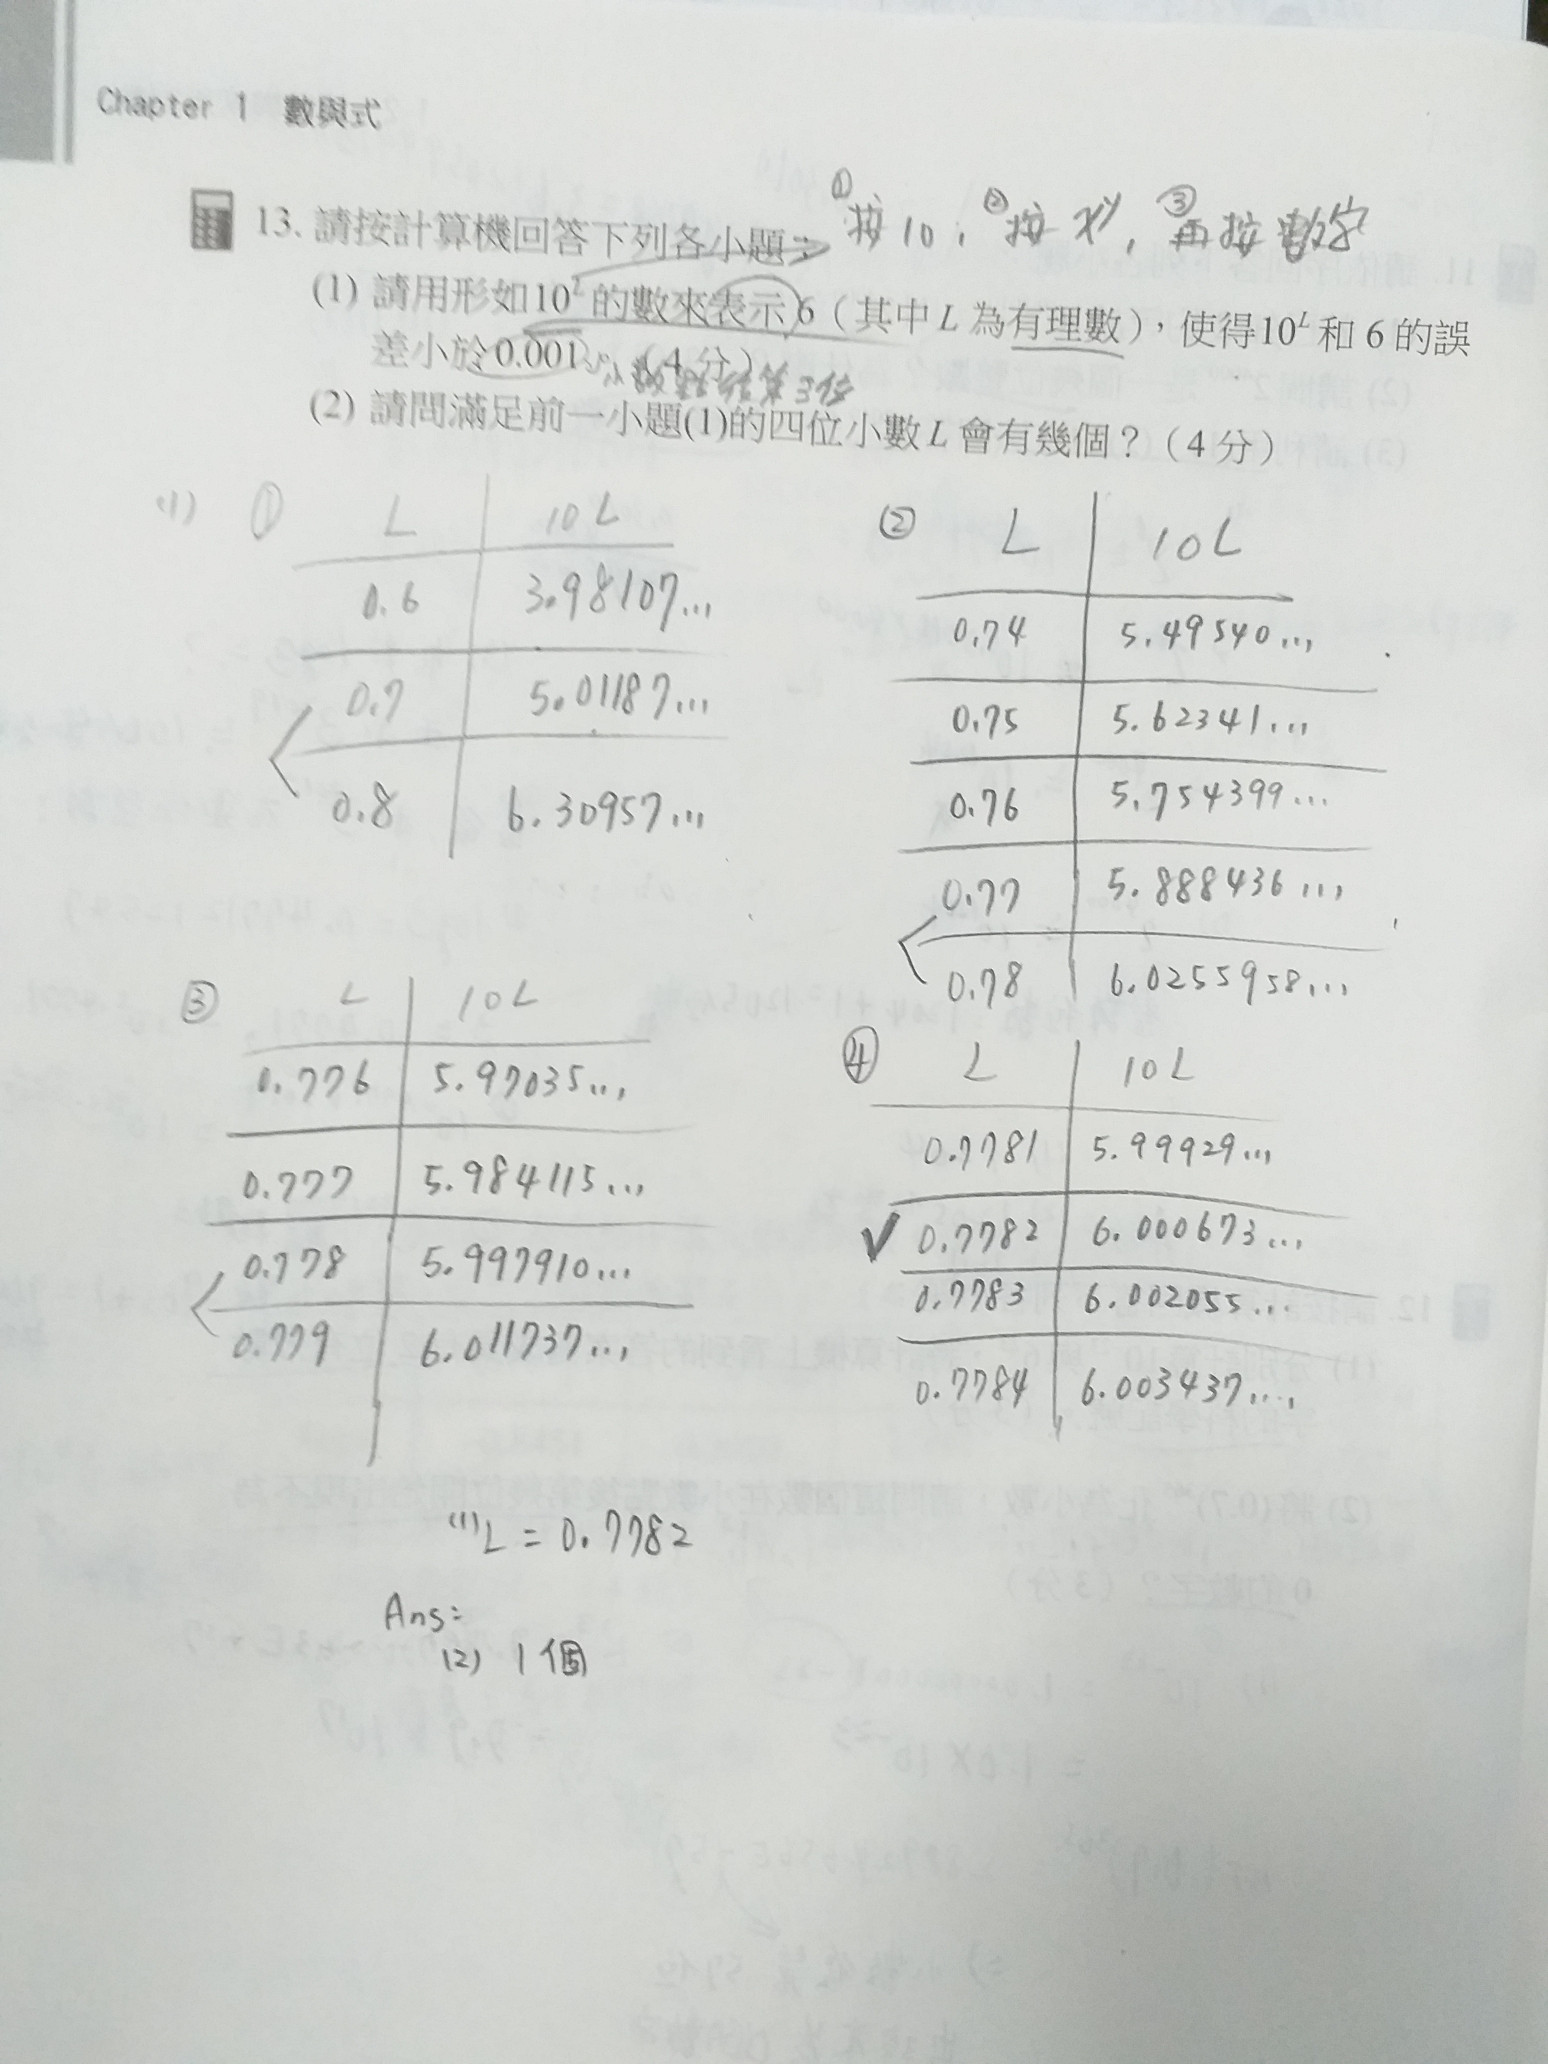 Chapter 1 數與式
①按10，②按 xʸ，③再按數字
13. 請按計算機回答下列各小題：
(1) 請用形如10ᴸ的數來表示6（其中L為有理數），使得10ᴸ和6的誤
差小於0.001。（4分）
(2) 請問滿足前一小題(1)的四位小數L會有幾個？（4分）
(1) ①
L 10L
0.6 3.98107...
0.7 5.01187...
0.8 6.30957...
②
L 10L
0.74 5.49540...
0.75 5.62341...
0.76 5.754399...
0.77 5.888436...
0.78 6.0255958...
③
L 10L
0.776 5.97035...
0.777 5.984115...
0.778 5.997910...
0.779 6.011737...
④
L 10L
0.7781 5.99929...
✓ 0.7782 6.000673...
0.7783 6.002055...
0.7784 6.003437....
(1) L = 0.7782
Ans:
(2) 1個